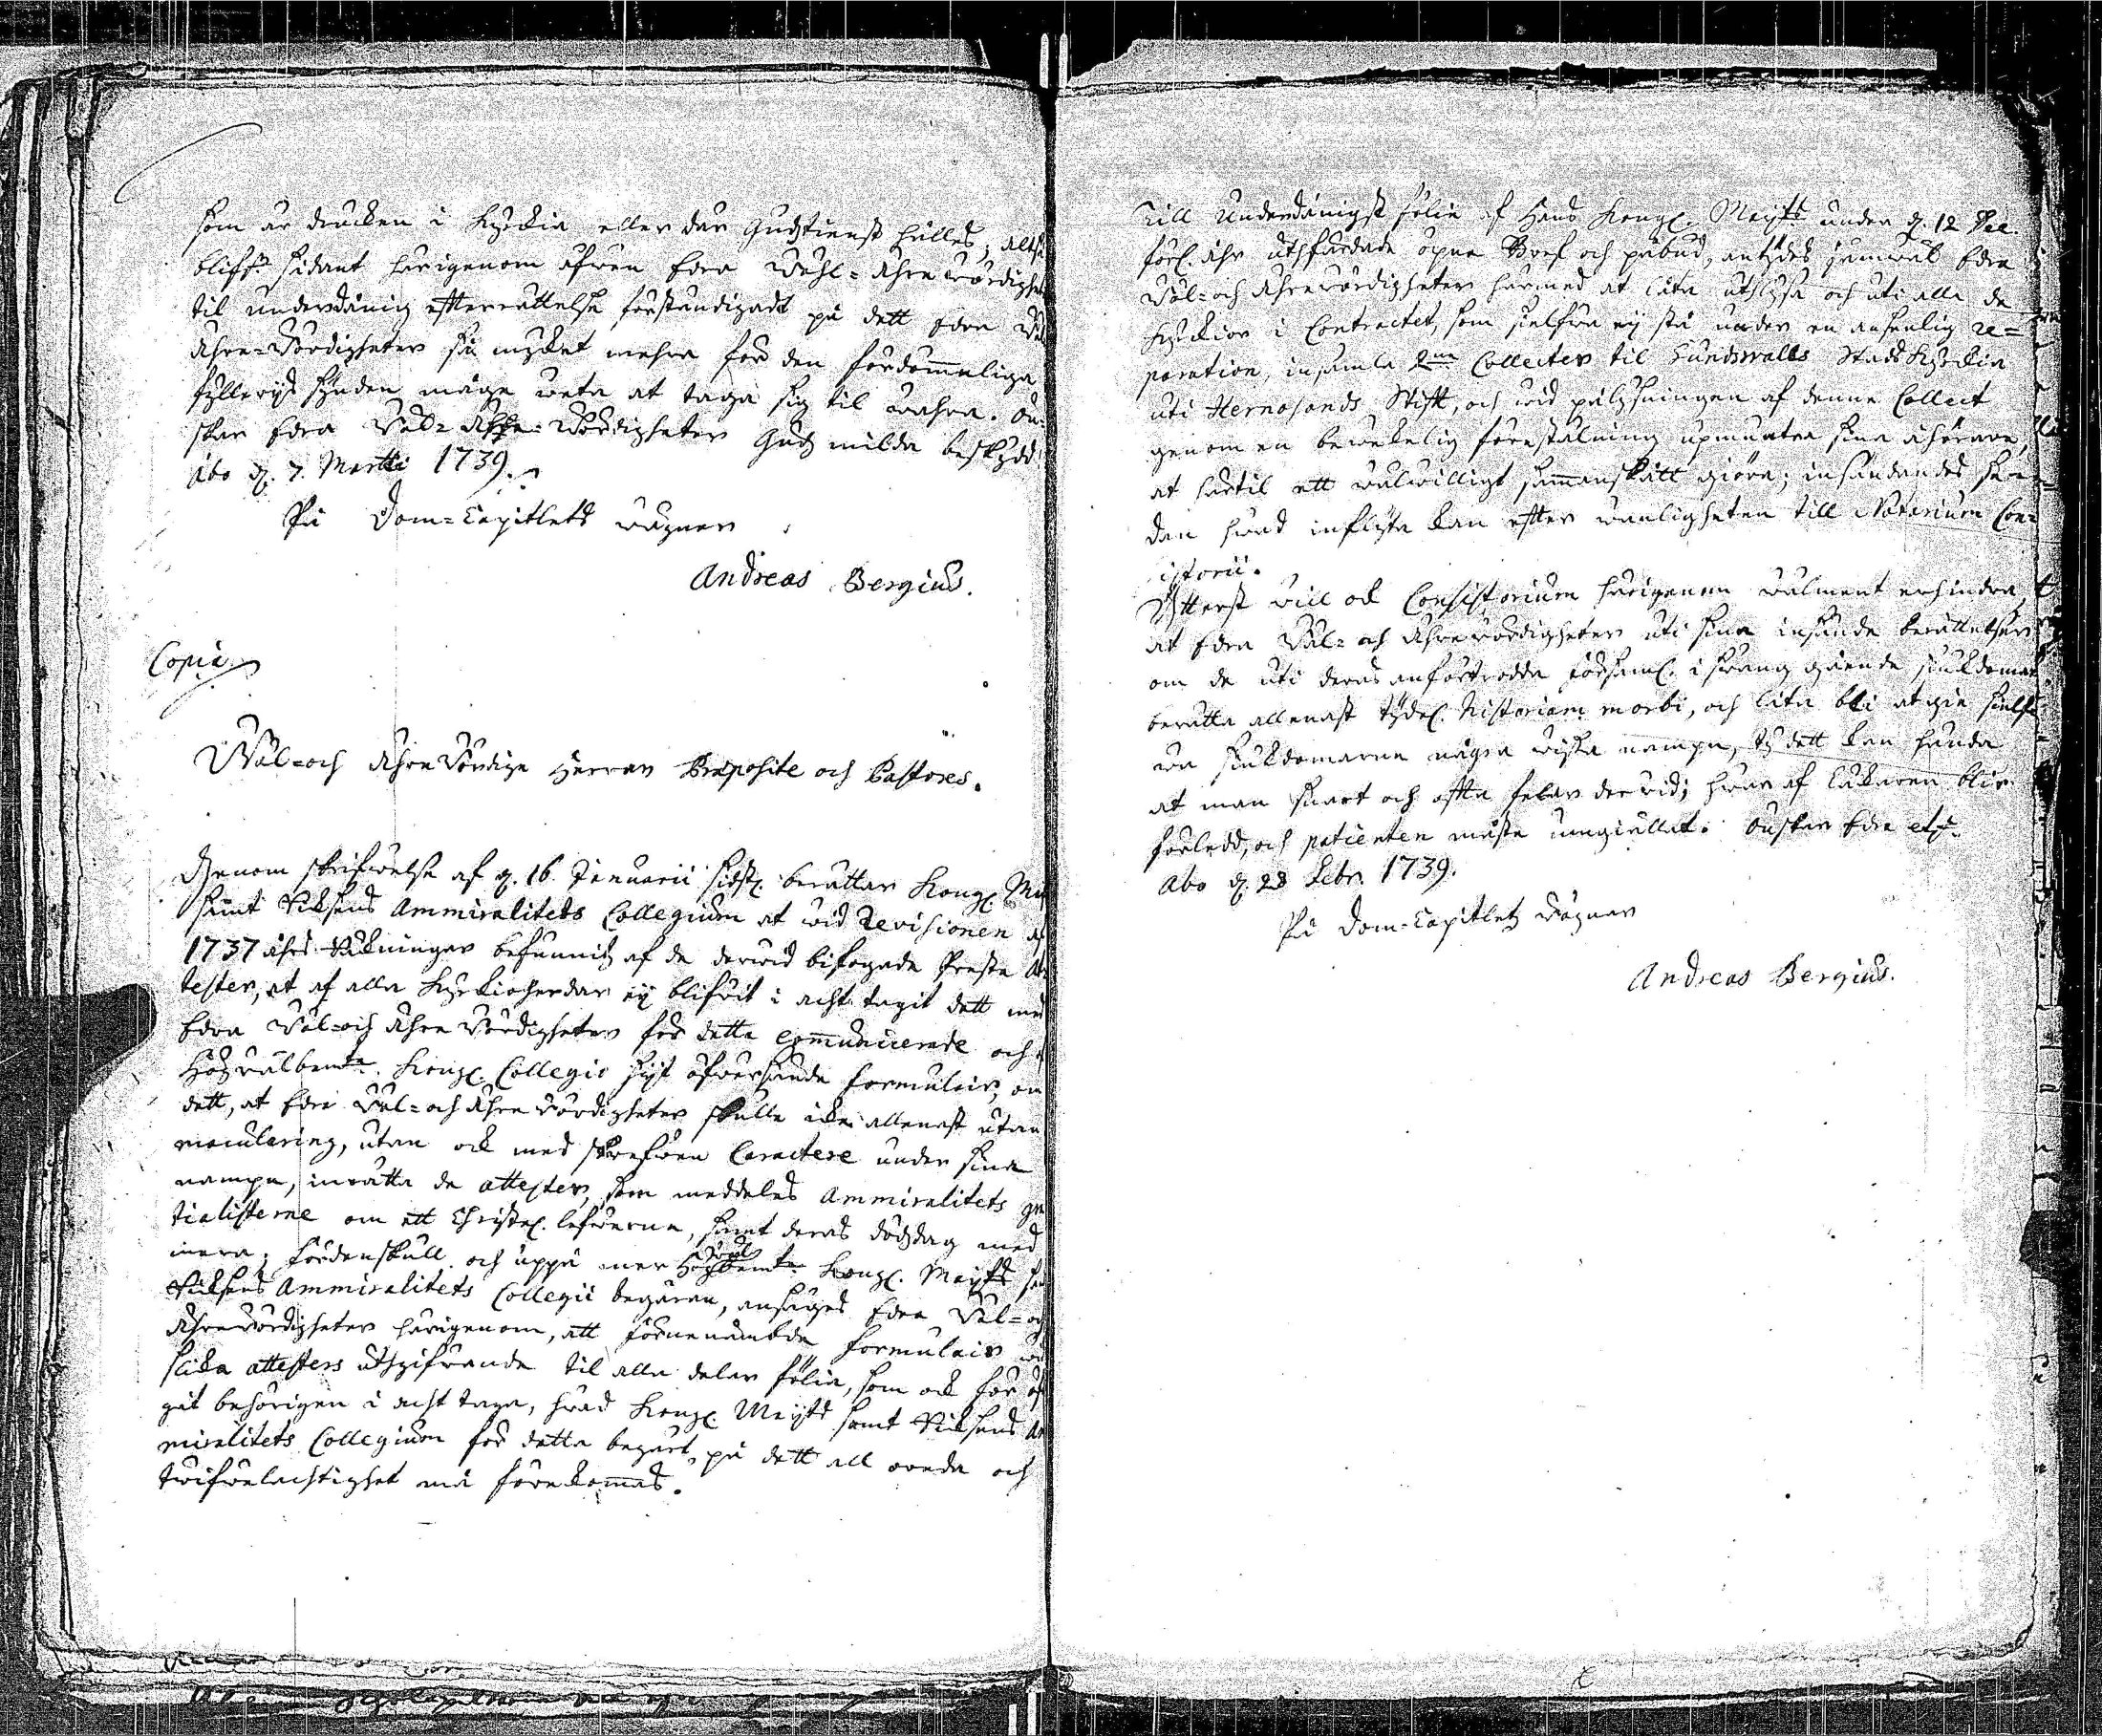 som är drucken i kyrckia eller där Gudztienst hålles; altså
blifr. sådant härigenom äfwen Edra Wähl-Ährewördighet
til underdånig efterrättelse förständigadt på dett Edra Wäl
Ähre-Wördigheter så mycket mehra för den fördömmeliga
fylleryd synden måge weta at taga sig til wahra. Ön-
skar Edra Wäl-Ähre-Wördigheter Gudz milda beskydd.
Åbo d. 7. Martii 1739.
På Dom-Capitlets wägnar
Andreas Bergius.
Copia
Wäl-och Ähre Wördige Herrar Præposite och Pastores.
Genom skrifwelse af d. 16 Januarii sidstl. berättar Kongl. May
samt Riksens Ammiralitets Collegium at wid Revisionen af
1737 åhrs Räkningar befunnitz af de derwid bifogade Preste At-
tester, at af alla Kyrkioherdar ej blifwit i acht tagit dett med
Edra Wäl-och Ähre Wördigheter för detta communicerade och
Högwälbemte. Kongl. Collegio hijt öfwersände formulair, om
dett, at Edra Wäl-och Ähre Wördigheter skulle icke allenast utan
maculering, utan ock med skrefwen Caractere under sina
nampn, inrätta de attester, som meddelas Ammiralitets gra
tialisterne om ett Christel. lefwerne, samt deras dödzdag med
mera; Fördenskull och uppå mer Högwälbemte Kongl. Mayts sa
Riksens Ammiralitets Collegii begäran, ansäges Edra Wäl-och
Ährewördigheter härigenom, att förnenämbde formulair wi
slika attesters utgifwande til alla delar följa, som ock för öf
git behörigen i acht taga, hwad Kongl. Mayts samt Riksens Am
miralitets Collegium för detta begärt, på dett all oreda och
twifwelachtighet må förekommas.
Till Underdånigst följe af Hans Kongl. Mayts. under d. 12 Dec.
förl. åhr uthfärdade öpna Bref och påbud, antydes jämwäl Edra
Wäl-och Ährewördigheter härmed at låta uthlysa och uti alla de
Kyrkior i Contractet, som sielfwe ej stå under en ansenlig re-
paration, insamla 2ne Collecter til Sundswalls Stads Kyrckia
uti Hernosands Stift, och wid pålysningen af denne Collect
genom en bewekelig förestälning upmuntra sina åhörare,
at härtil ett wälwilligt sammanskått giöra; insändandes seer-
dan hwad inflyta kan efter wanligheten till Notarium Con-
istorii.
Ytterst will ock Consistorium härigenom wälment erhindra,
at Edra Wäl-och Ährewördigheter uti sina insände berättelser
om de uti deras anförtrodde församl. i swang gående siukdomar
berätta allenast tydel. historiam morbi, och låta bli at gie sielf-
wa siukdomarna någre wissa nampn, ty dett kan hända
at man snart och ofta felar derwid; hwar af Läkaren blir
förledd, och patienten miste umgiället. Önskar Edra etc.
Åbo d. 28 Febr. 1739.
På Dom-Capitletz Wägnar
Andreas Bergius.